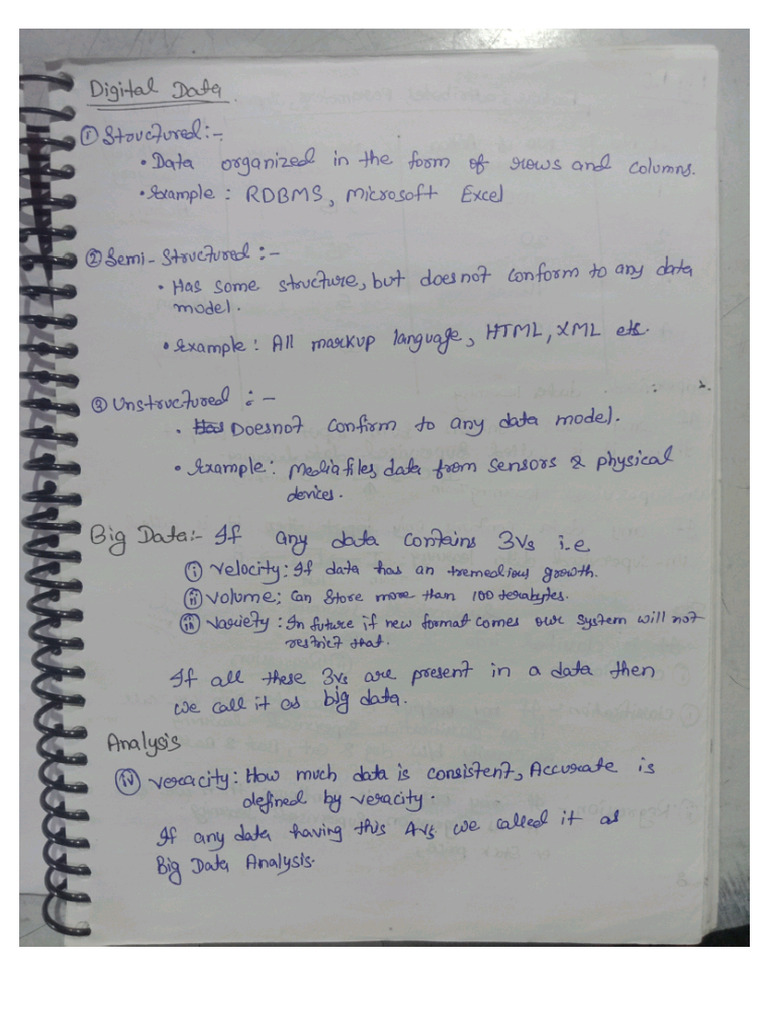 Digital Data
① Structured :-
• Data organized in the form of rows and columns.
• Example : RDBMS, Microsoft Excel
② Semi-Structured :-
• Has some structure, but does not conform to any data
model.
• Example : All markup language, HTML, XML etc.
③ Unstructured :-
• Has Doesnot confirm to any data model.
• Example : Media files, data from sensors & physical
devices.
Big Data :- If any data contains 3Vs i.e
(i) Velocity : If data has an tremedious growth.
(ii) Volume ; Can store more than 100 terabytes.
(iii) Variety : In future if new format comes our system will not
restrict that.
If all these 3Vs are present in a data then
we call it as big data.
Analysis
(iv) Veracity : How much data is consistent, Accurate is
defined by veracity.
If any data having this 4Vs we called it as
Big Data Analysis.